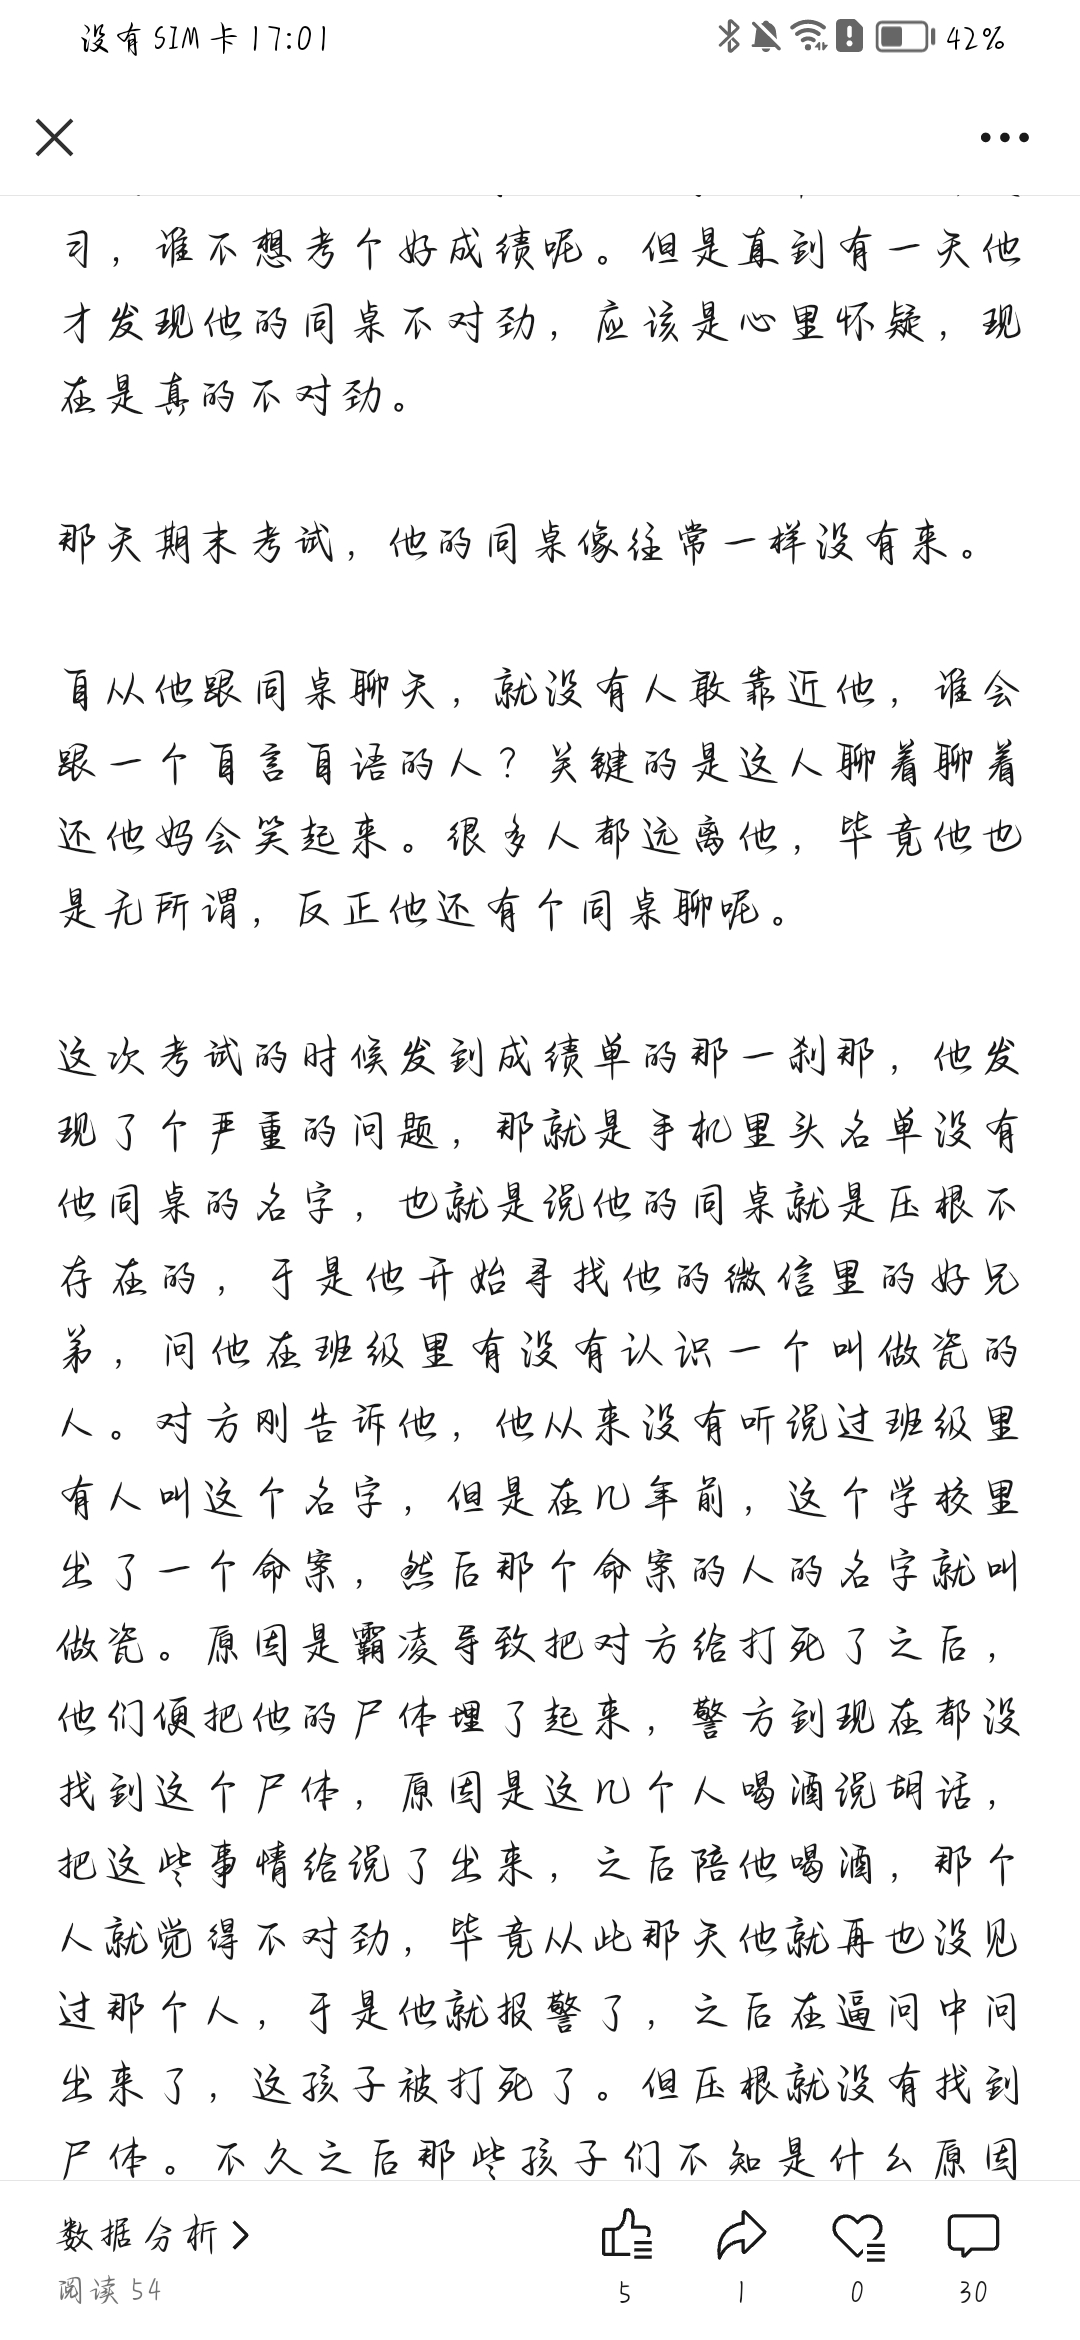 没有SIM卡 17:01
42%
习，谁不想考个好成绩呢。但是直到有一天他
才发现他的同桌不对劲，应该是心里怀疑，现
在是真的不对劲。
那天期末考试，他的同桌像往常一样没有来。
自从他跟同桌聊天，就没有人敢靠近他，谁会
跟一个自言自语的人？关键的是这人聊着聊着
还他妈会笑起来。很多人都远离他，毕竟他也
是无所谓，反正他还有个同桌聊呢。
这次考试的时候发到成绩单的那一刹那，他发
现了个严重的问题，那就是手机里头名单没有
他同桌的名字，也就是说他的同桌就是压根不
存在的，于是他开始寻找他的微信里的好兄
弟，问他在班级里有没有认识一个叫做瓷的
人。对方刚告诉他，他从来没有听说过班级里
有人叫这个名字，但是在几年前，这个学校里
出了一个命案，然后那个命案的人的名字就叫
做瓷。原因是霸凌导致把对方给打死了之后，
他们便把他的尸体埋了起来，警方到现在都没
找到这个尸体，原因是这几个人喝酒说胡话，
把这些事情给说了出来，之后陪他喝酒，那个
人就觉得不对劲，毕竟从此那天他就再也没见
过那个人，于是他就报警了，之后在逼问中问
出来了，这孩子被打死了。但压根就没有找到
尸体。不久之后那些孩子们不知是什么原因
数据分析
阅读 54
5
1
0
30